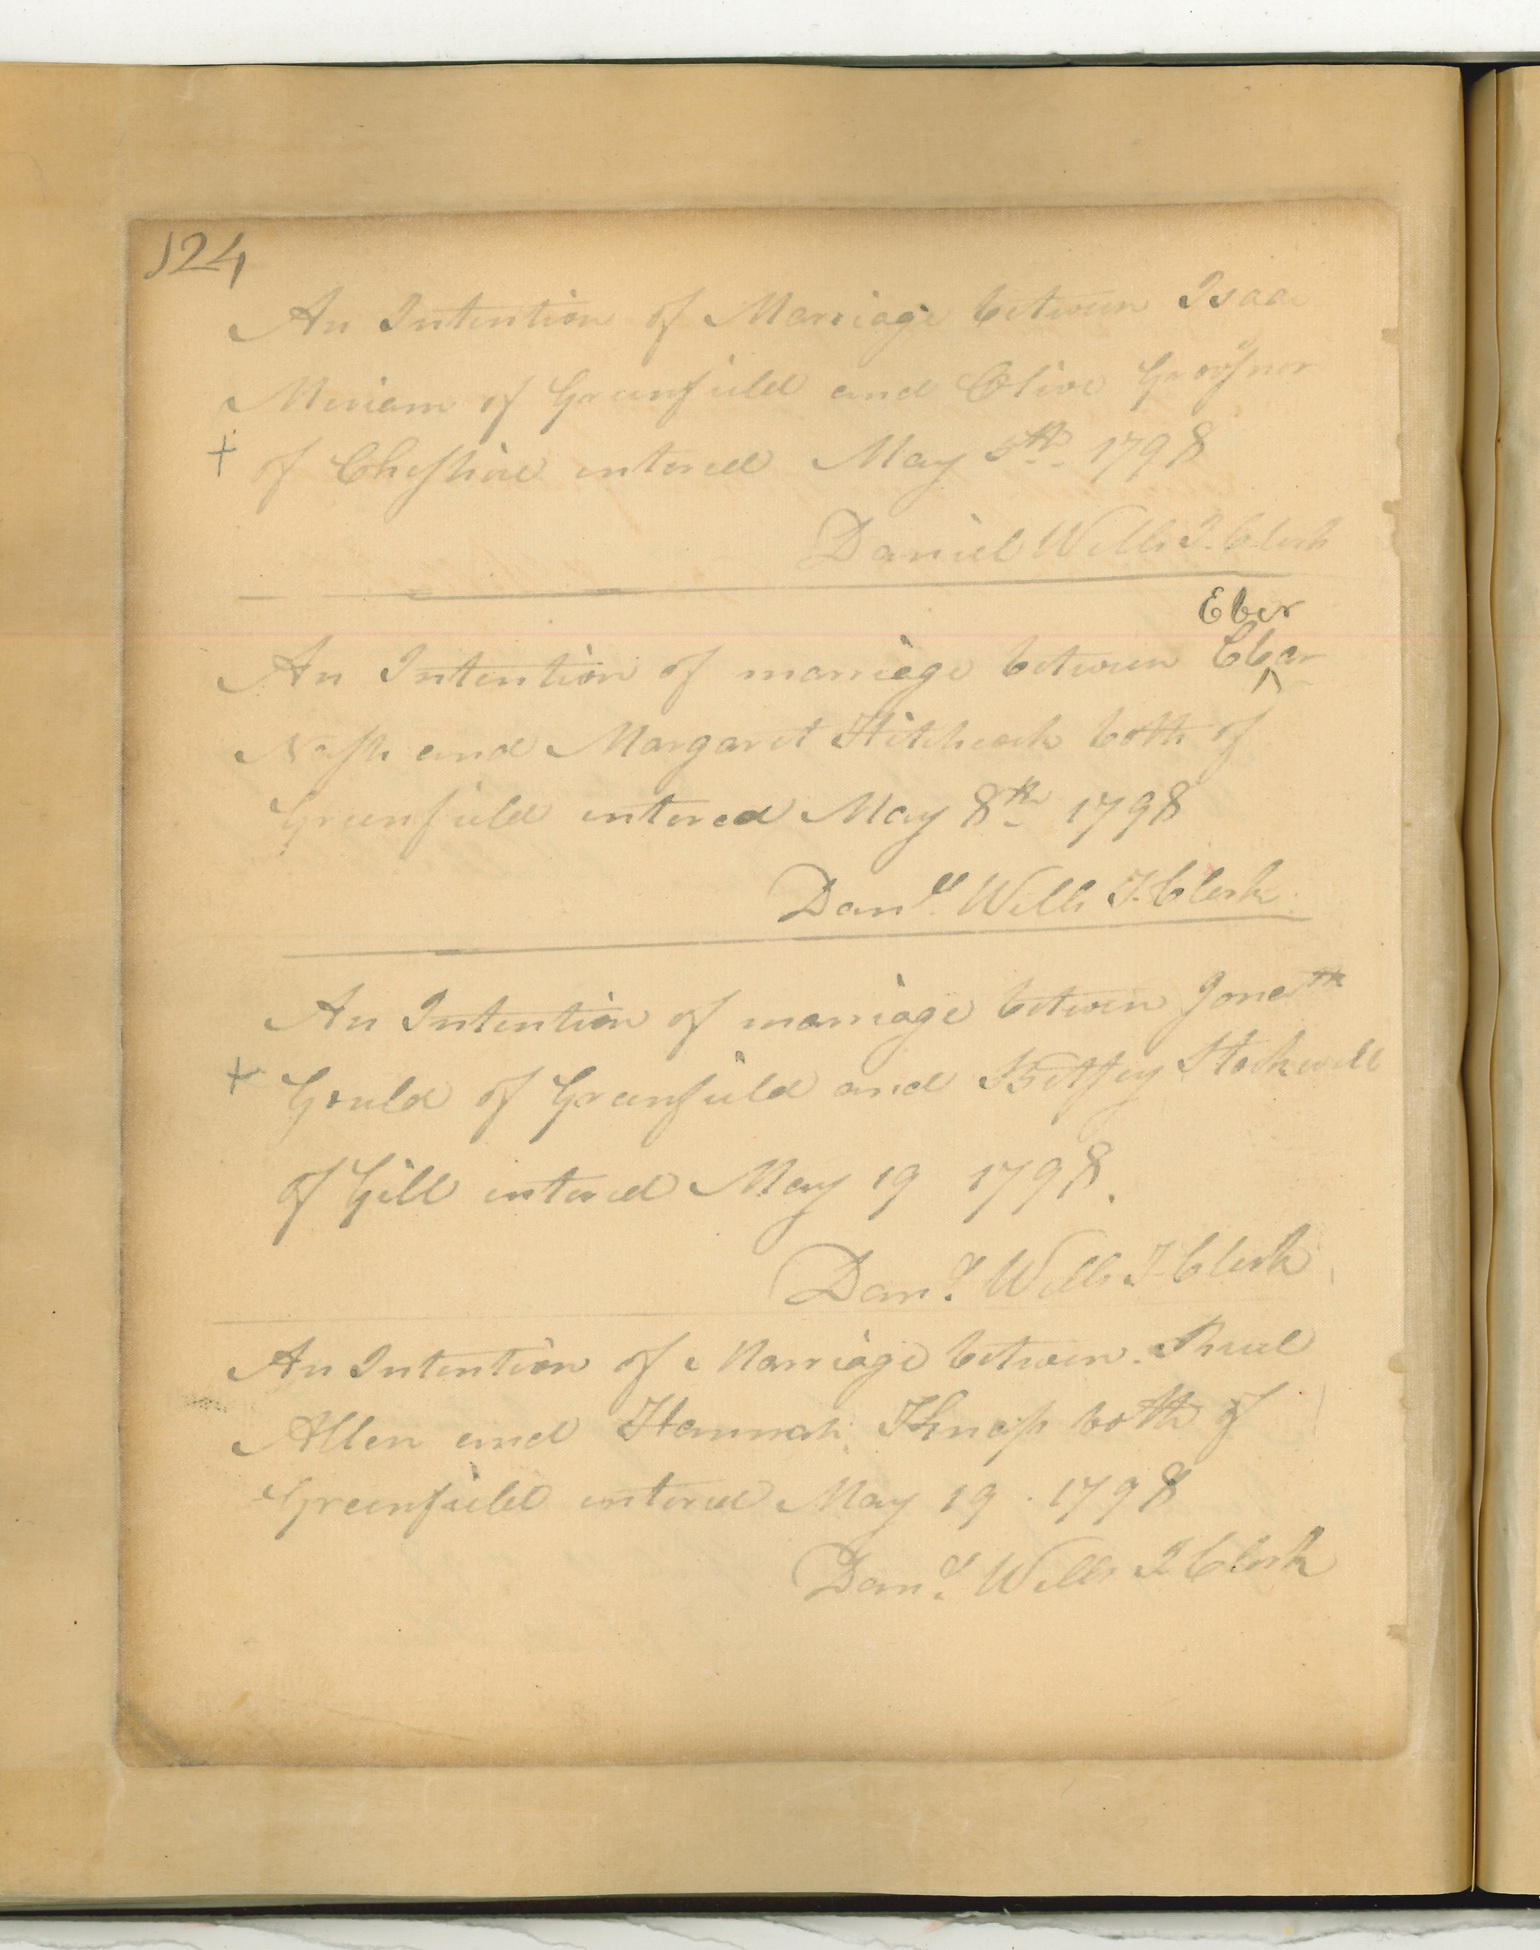 124
An Intention of Marriage between Isaac
Miriam of Greenfield and Olive Grovsnor
+ of Cheshire entered May 5th 1798
Daniel Wells T. Clerk
Eber
An Intention of marriage between Ebar
Nash and Margaret Hitchcock both of
Greenfield entered May 8th 1798
Danll. Wells T. Clerk
An Intention of marriage between Jonath
+ Gould of Greenfield and Betsey Stockwell
of Gill entered May 19 1798.
Danl. Wells T. Clerk
An Intention of Marriage between
Allen and Hannah Knap both of
Greenfield entered May 19. 1798
Danl. Wells T Clerk